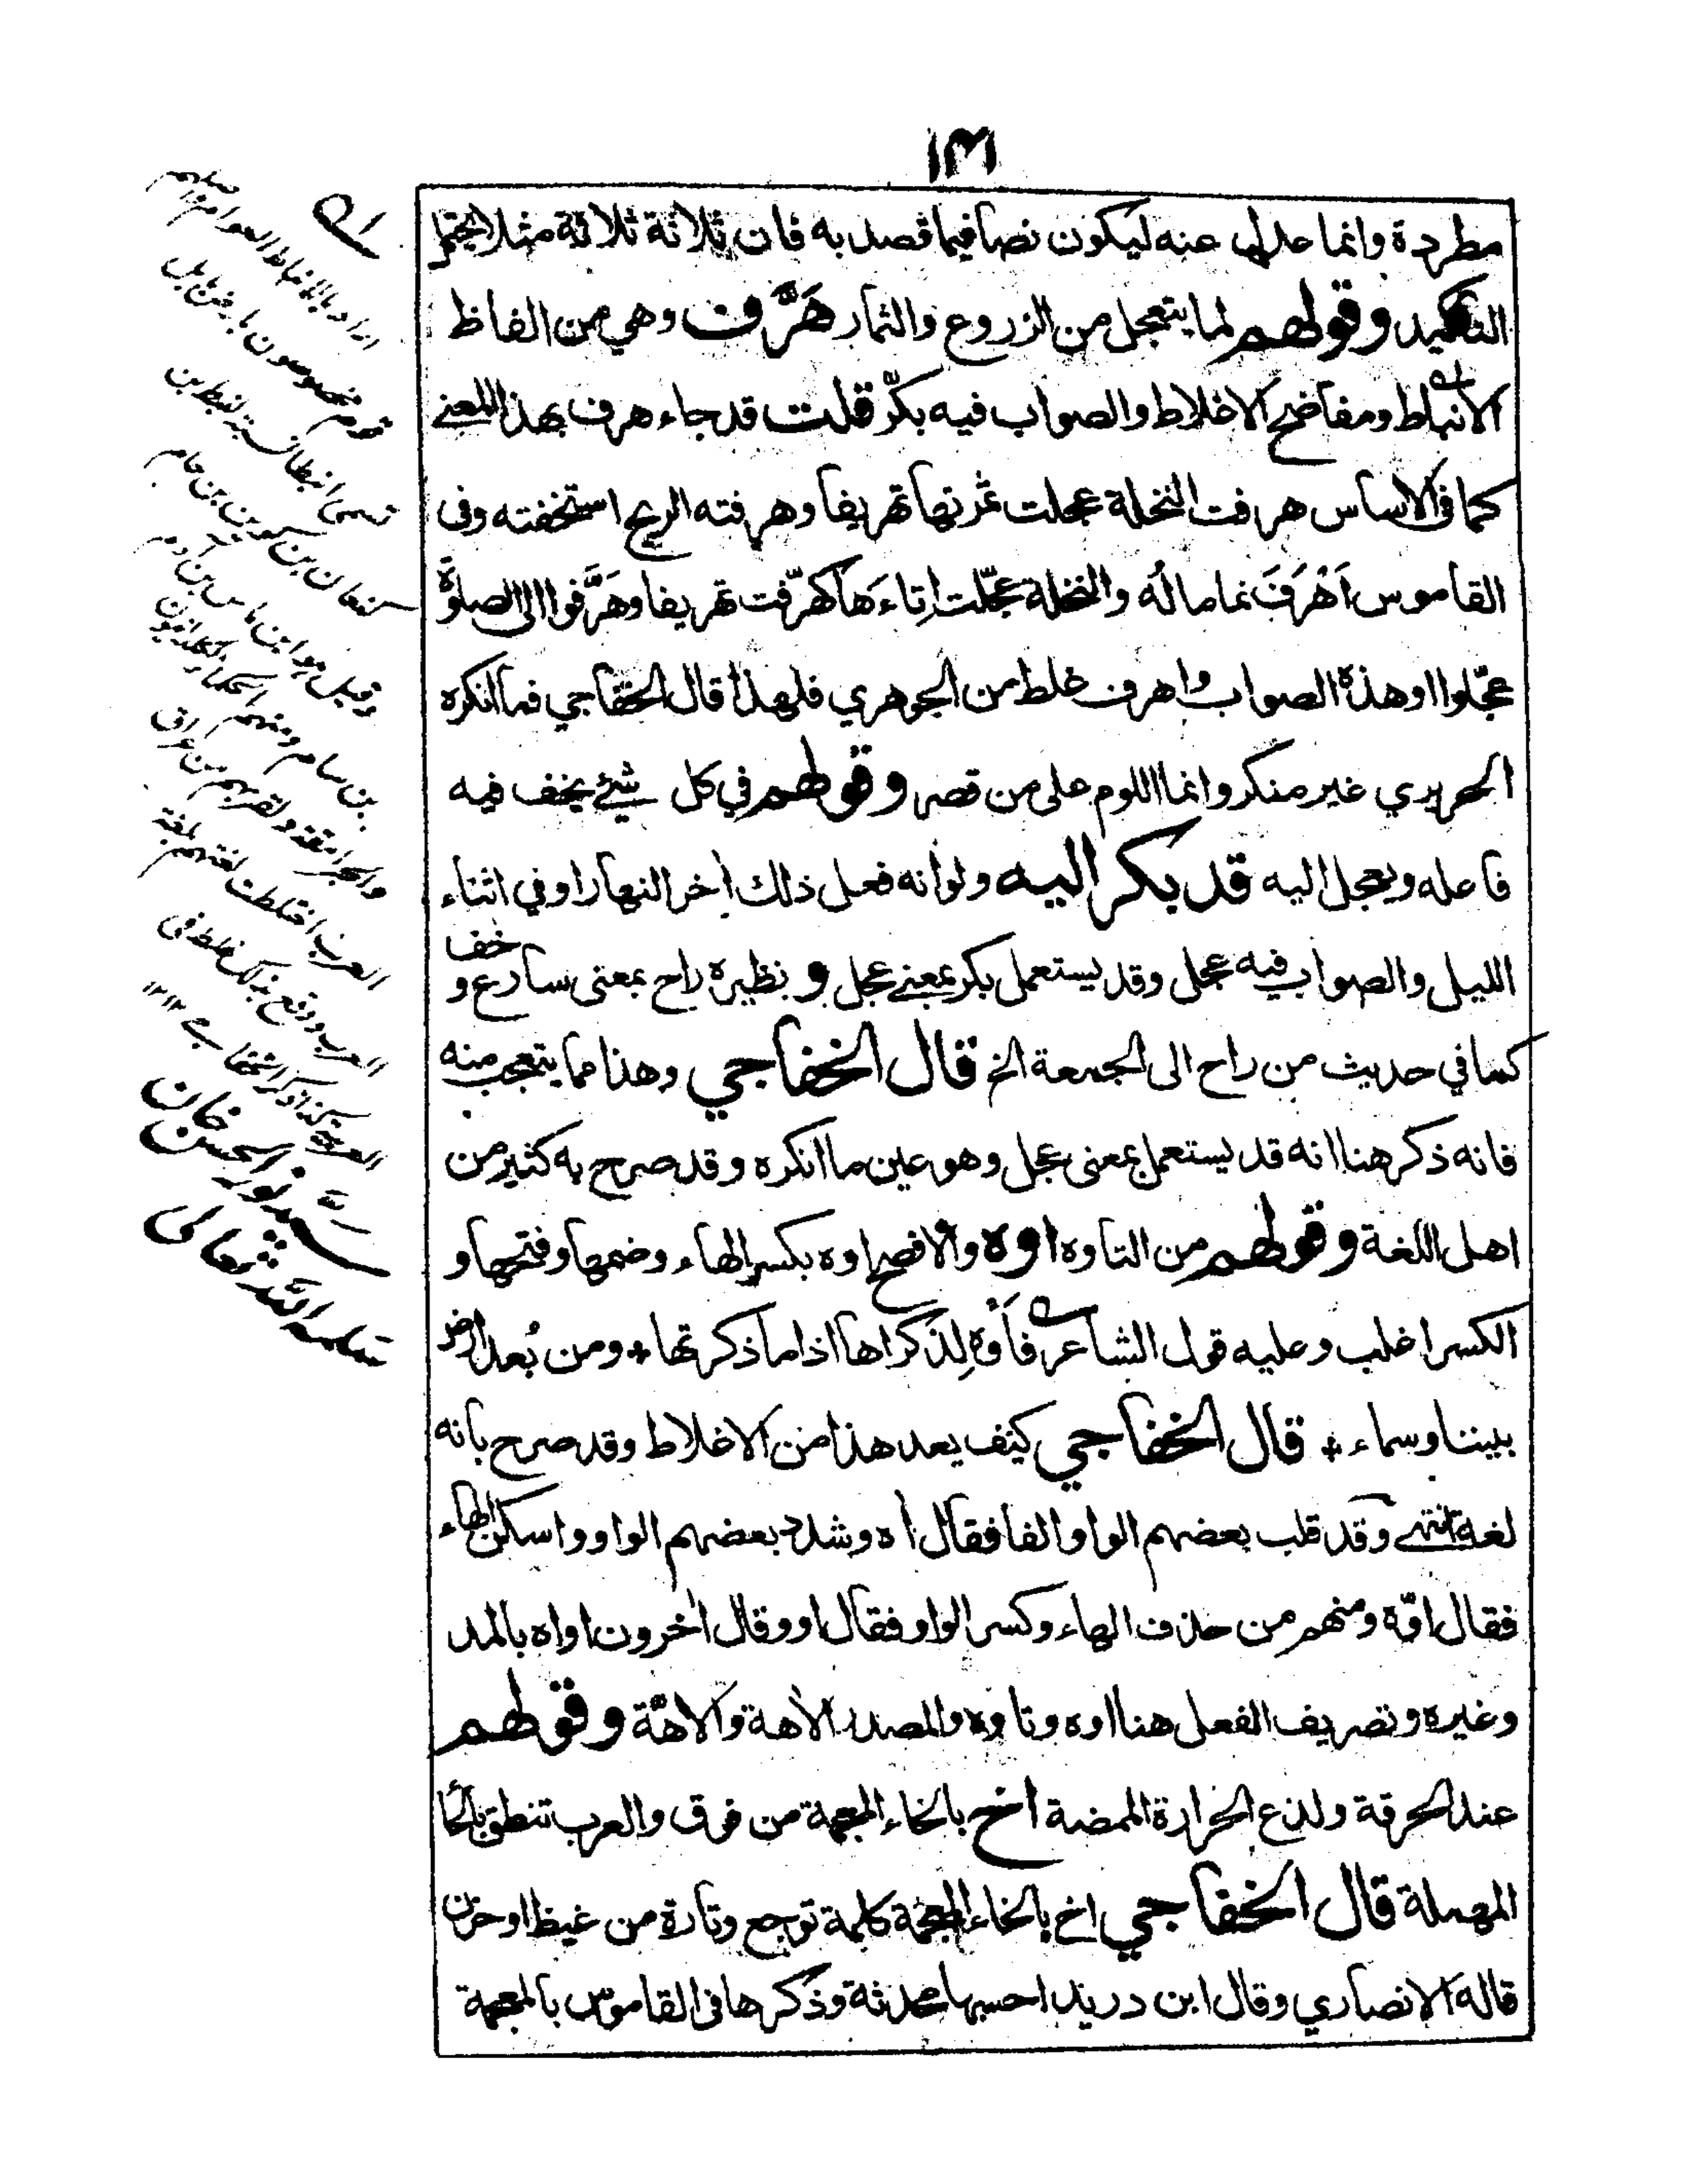 ١٣١
مطردة وانما عدل عنه ليكون نصا فيما قصد به فان ثلاثة ثلاثة مثلا يحتمل
التاكيد وقولهم لما يتعجل من الزروع والثمار هَرَّف وهي من الفاظ
الانباط ومفاضح الاغلاط والصواب فيه بكّر قلت قد جاء هرف بهذا المعنى
كما في الاساس هرفت النخلة عجلت ثمرتها تهريفا وهرفته الريح استخفته وفى
القاموس اَهْرَفَ نما ماله والنخلة عجّلت اِتاءَها كهرّفت تهريفا وهَرَّفوا الى الصلوة
عجّلوا او هذه الصواب واهرف غلط من الجوهري فلهذا قال الخفاجي فما انكره
الحريري غير منكر وانما اللوم على من قصر وقولهم في كل شيئ يخف فيه
فاعله ويعجل اليه قد بكر اليه ولو انه فعل ذلك اخر النهار او في اثناء
الليل والصواب فيه عجل وقد يستعمل بكر بمعنى عجل و نظيره راح بمعنى سارع و خف
كما في حديث من راح الى الجمعة الخ قال الخفاجي وهذا مما يتعجب منه
فانه ذكر هنا انه قد يستعمل بمعنى عجل وهو عين ما انكره وقد صرح به كثير من
اهل اللغة وقولهم من التاوه اوه والافصح اوه بكسر الهاء وضمها وفتحها و
الكسر اغلب وعليه قول الشاعر فَاَوْهِ لِذكراها اذا ما ذكرتها * ومن بُعد ارض
بيننا وسماء * قال الخفاجي كيف يعد هذا من الاغلاط وقد صرح بانه
لغة انتهى وقد قلب بعضهم الواو الفا فقال اه وشدد بعضهم الواو واسكن الهاء
فقال اوّه ومنهم من حذف الهاء وكسر الواو فقال او وقال اخرون اواه بالمد
وغيره وتصريف الفعل هنا اوه وتاوه والمصدر الاهة والاهّة وقولهم
عند الحرقة ولذع الحرارة الممضة اخ بالخاء المعجمة من فوق والعرب تنطق بالحا
المهملة قال الخفاجي اخ بالخاء المعجمة كلمة توجع وتارة من غيظ او حزن
قاله الانصاري وقال ابن دريد احسبها محدثة وذكرها فى القاموس بالمعجمة
اراد بالانباط العوام واصلهم
قوم مخصوصون بارض بابل
بن كوش بن حام
وقيل هو ابن ماش بن آدم
بن سام ومنهم
العرب اختلطت لغتهم بلغة
العرب ووقع بذلك غلط فى
العربية كذا ذكر الخفاجي ١٢
سيد نور الحسن خان
سلمه الله تعالى